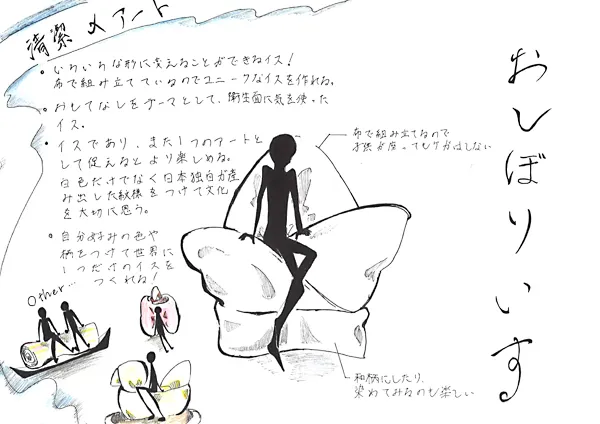 清潔 × アート
おしぼりいす
・いろいろな形に変えることができるイス！
布で組み立てているのでユニークなイスを作れる。
・おもてなしをテーマとして、衛生面に気を使った
イス。
・イスであり、また1つのアートと
して捉えるとより楽しめる。
白色だけでなく日本独自が産
み出した紋様をつけて文化
を大切に思う。
・自分好みの色や
柄をつけて世界に
1つだけのイスを
つくれる！
布で組み立てるので
子供が座ってもケガはしない
Other…
和柄にしたり、
染めてみるのも楽しい